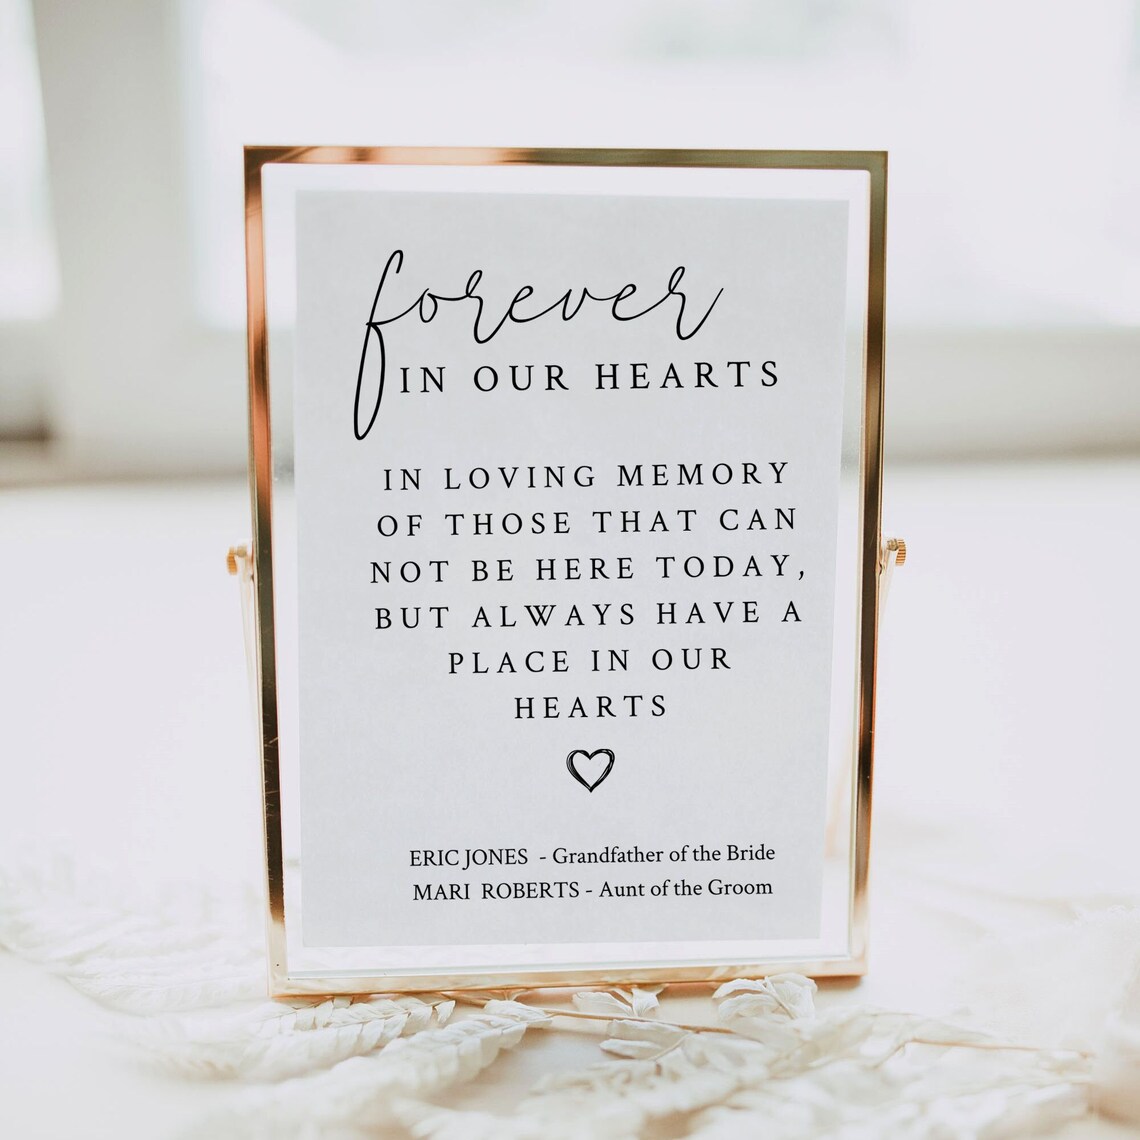 forever
IN OUR HEARTS
IN LOVING MEMORY
OF THOSE THAT CAN
NOT BE HERE TODAY,
BUT ALWAYS HAVE A
PLACE IN OUR
HEARTS
ERIC JONES - Grandfather of the Bride
MARI ROBERTS - Aunt of the Groom